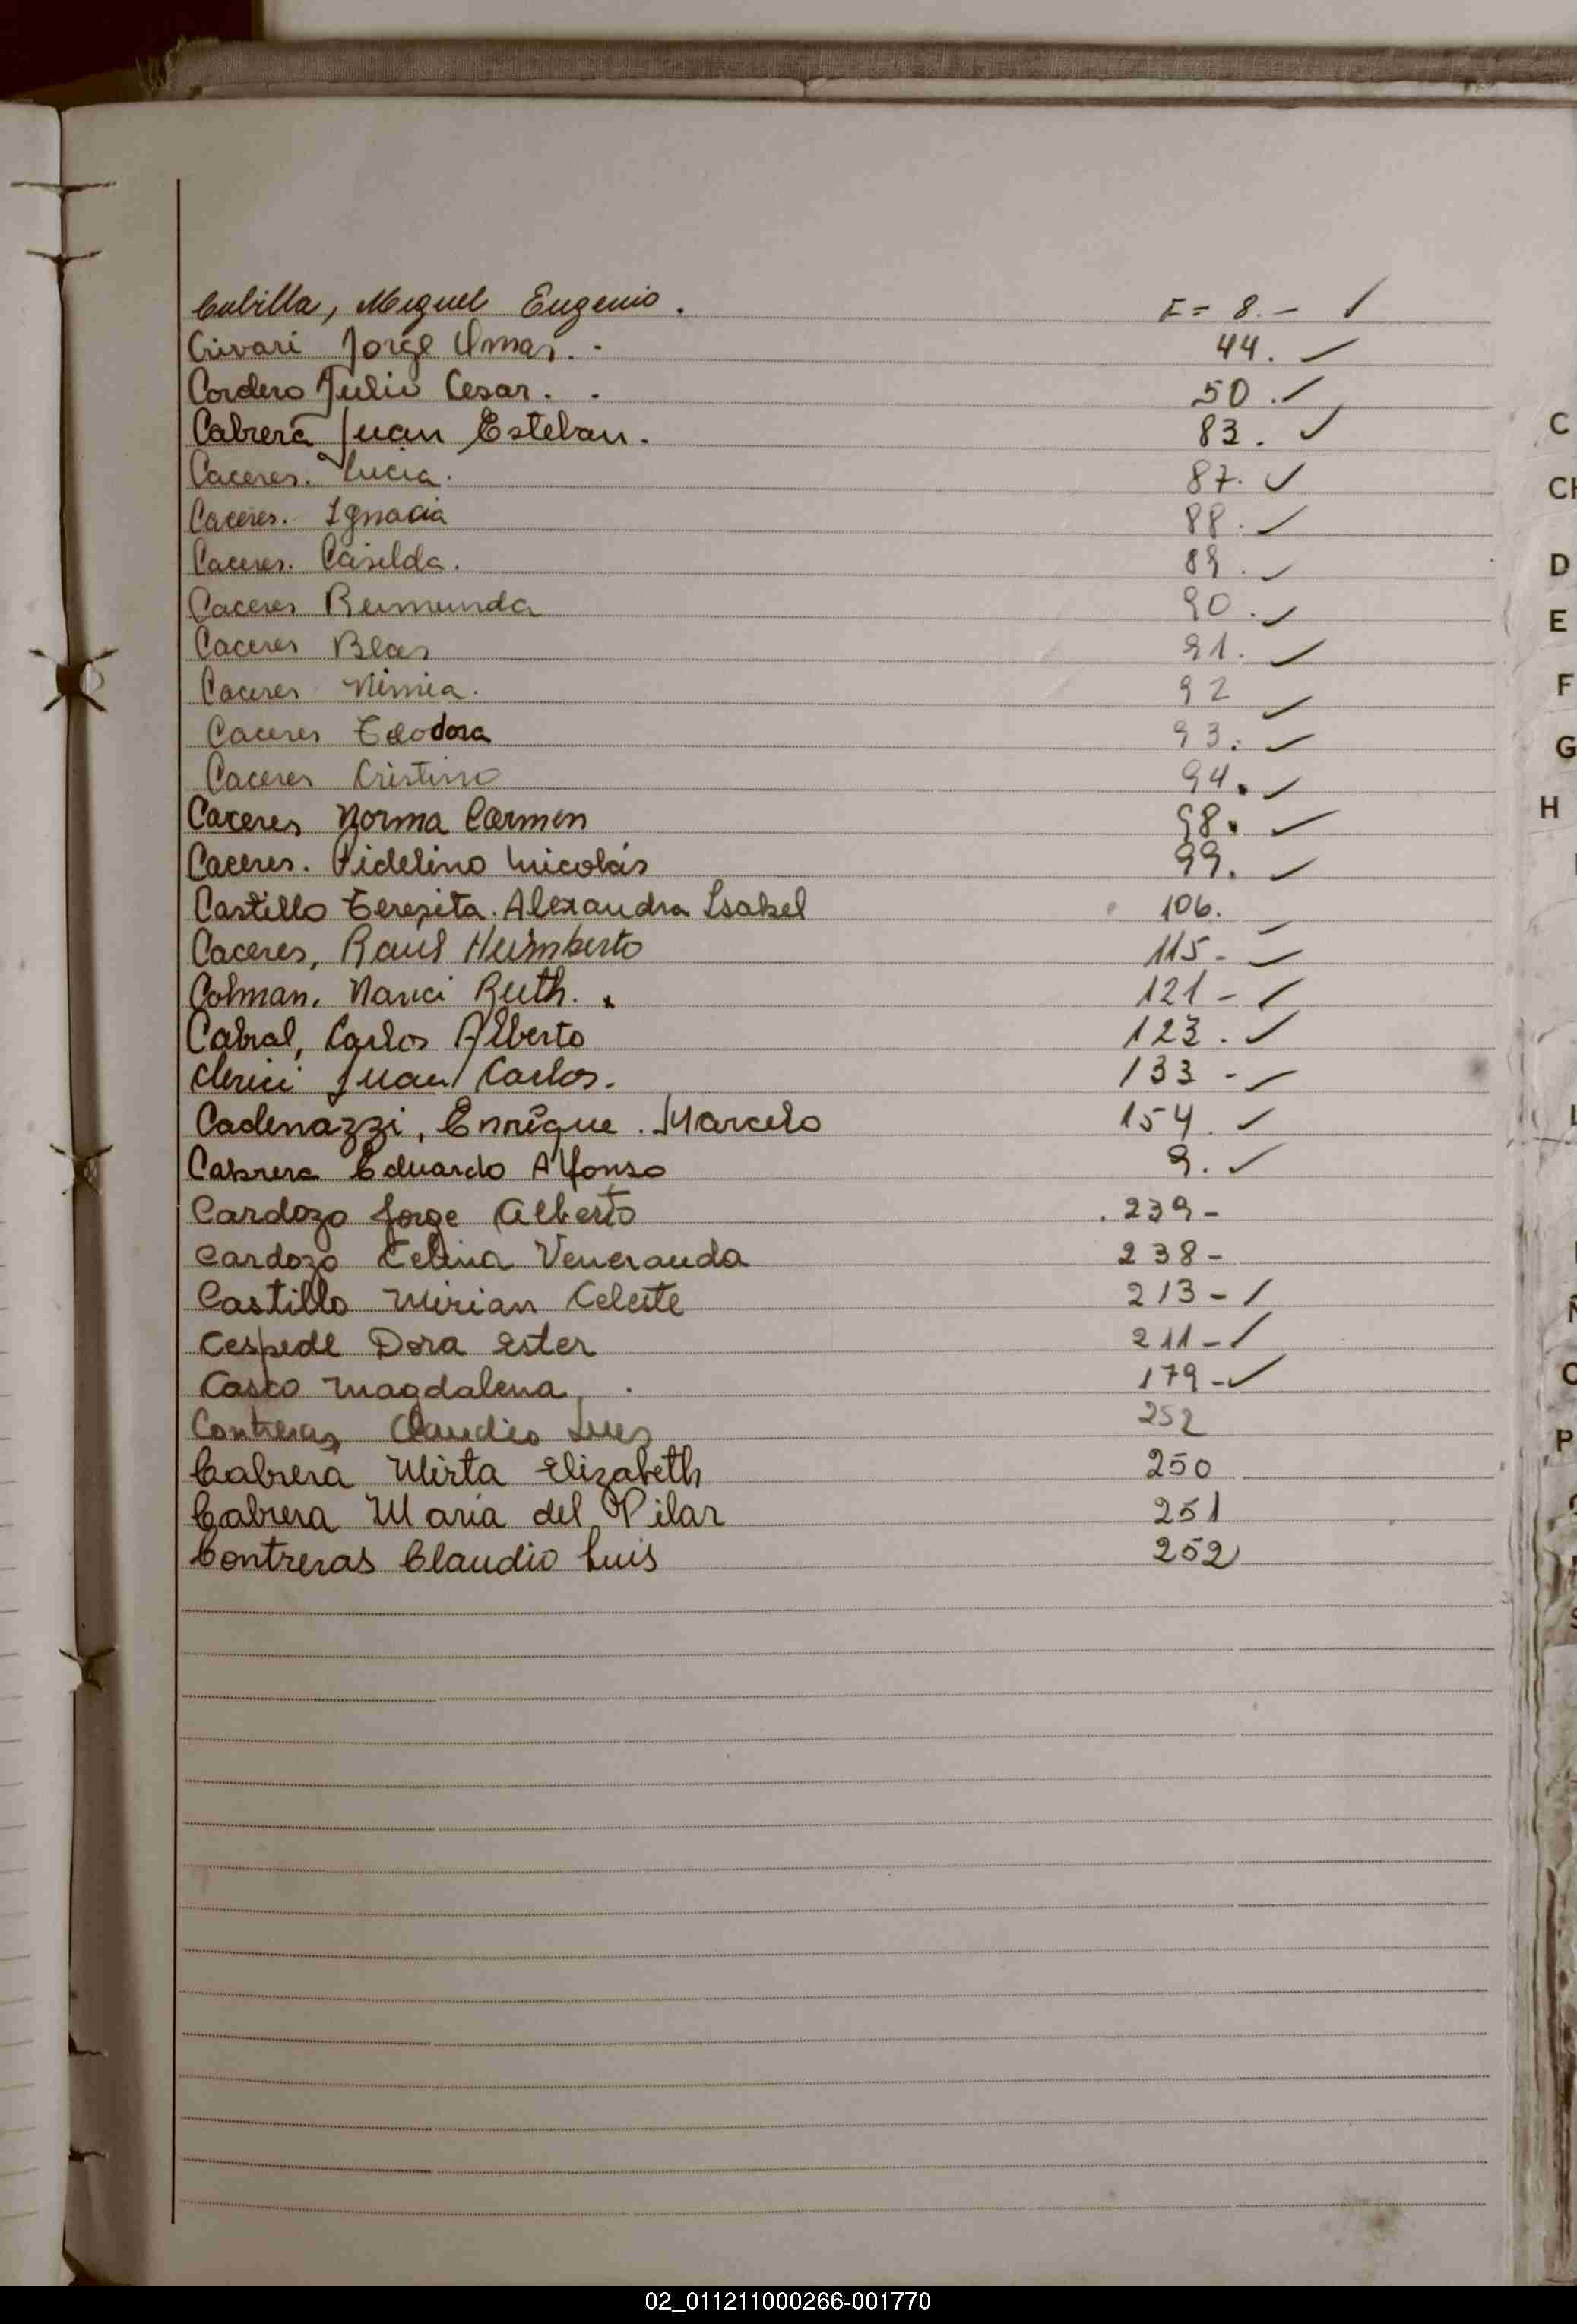 Cubilla, Miguel Eugenio. F= 8.- ✓
Crivari Jorge Omar. - 44. ✓
Cordero Julio Cesar. . 50. ✓
Cabrera Juan Esteban. 83. ✓
Caceres. Lucia. 87. ✓
Caceres. Ignacia 88. ✓
Caceres. Casilda. 89. ✓
Caceres Reimunda 90. ✓
Caceres Blas 91. ✓
Caceres Nimia. 92 ✓
Caceres Teodora 93. ✓
Caceres Cristino 94. ✓
Caceres Norma Carmen 98. ✓
Caceres. Fidelino Nicolás 99. ✓
Castillo Teresita. Alexandra Isabel 106.
Caceres, Raul Humberto 115- ✓
Colman, Nanci Ruth. . 121- ✓
Cabral, Carlos Alberto 123. ✓
Clerici Juan Carlos. 133 - ✓
Cadenazzi, Enrique. Marcelo 154. ✓
Cabrera Eduardo Alfonso 9. ✓
Cardozo Jorge Alberto . 239-
Cardozo Celina Veneranda 238-
Castillo Mirian Celeste 213- ✓
Cespede Dora Ester 211- ✓
Casco Magdalena. . 179- ✓
Contreras Claudio Luis 252
Cabrera Mirta Elizabeth 250
Cabrera Maria del Pilar 251
Contreras Claudio Luis 252
C
CH
D
E
F
G
H
P
02_011211000266-001770